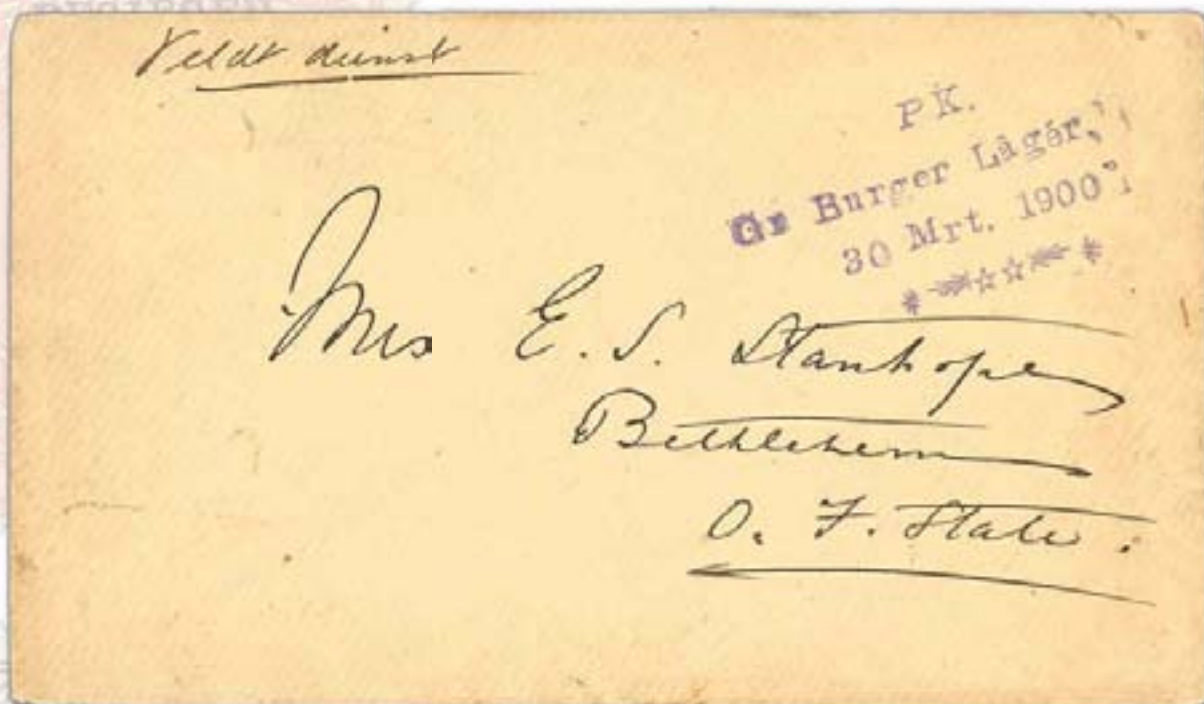 Veldt dienst
P K.
Or Burger Lågér,
30 Mrt. 1900
Mrs E. S. Stanhope
Bethlehem
O. F. State.